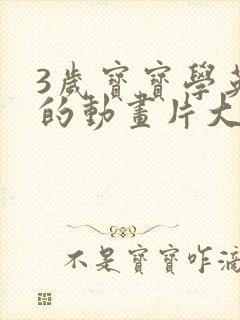 3歲寶寶學英
的動畫片大
不是寶寶咋滴